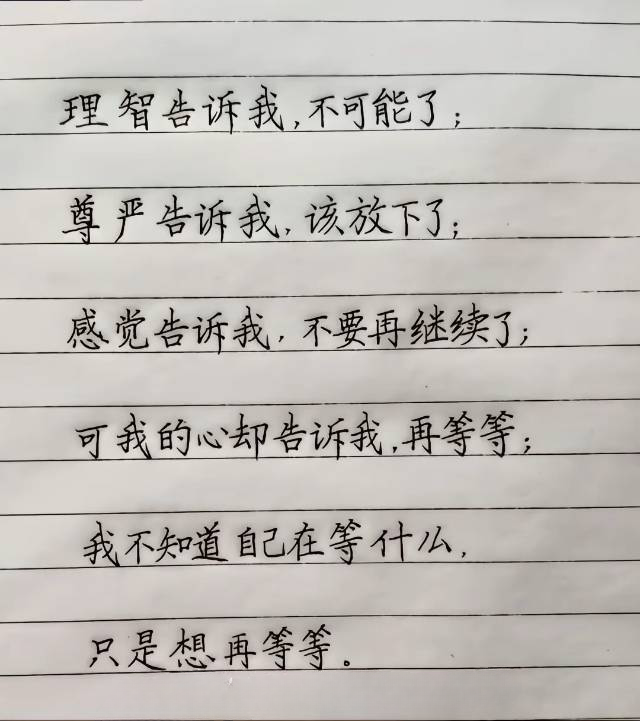 理智告诉我,不可能了;
尊严告诉我,该放下了;
感觉告诉我,不要再继续了;
可我的心却告诉我,再等等;
我不知道自己在等什么,
只是想再等等。